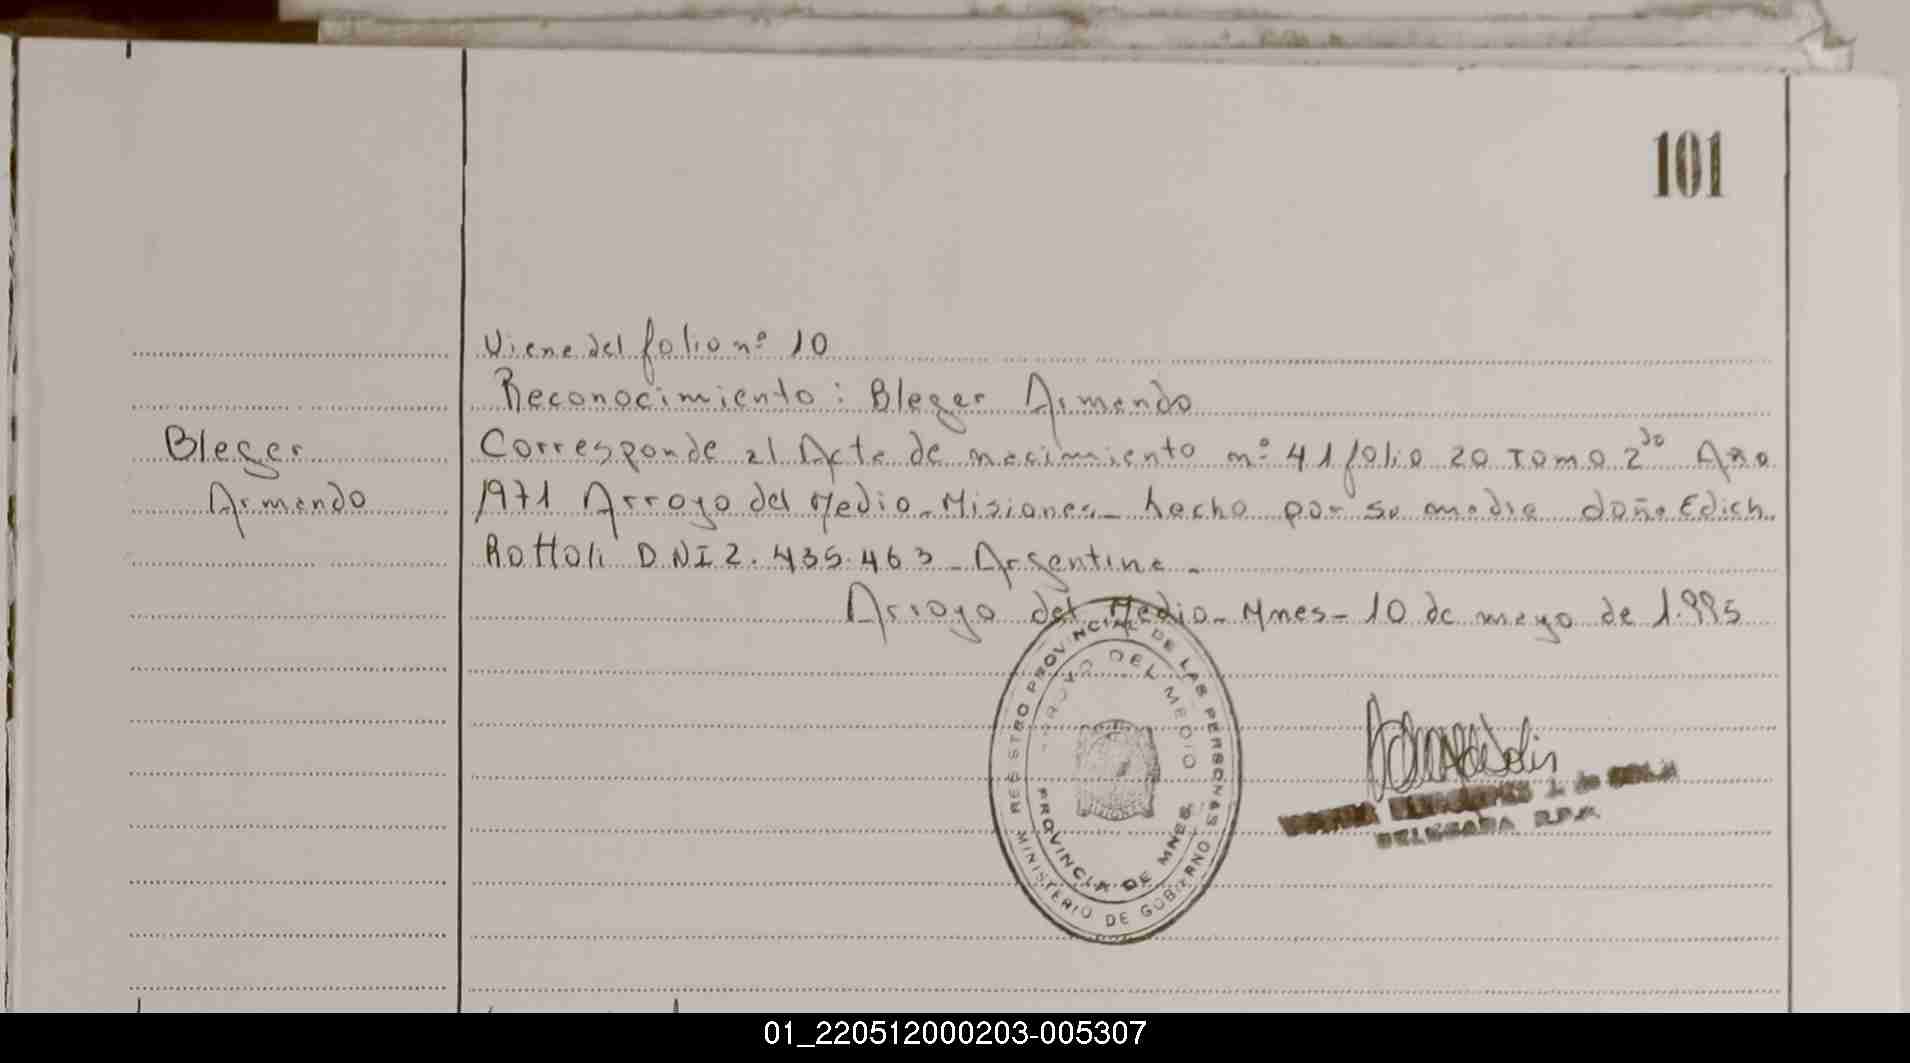 101
Viene del folio nº 10
Reconocimiento: Bleger Armando
Bleger
Armando
Corresponde al Acta de nacimiento nº 41 folio 20 Tomo 2do Año
1971 Arroyo del Medio - Misiones - hecho por su madre doña Edich
Rottoli D NI 2.435.463 - Argentina -
Arroyo del Medio - Mnes - 10 de mayo de 1.995
REGISTRO PROVINCIAL DE LAS PERSONAS
ARROYO DEL MEDIO
PROVINCIA DE MNES.
MINISTERIO DE GOBIERNO
DELEGADA R.P.P.
01_220512000203-005307